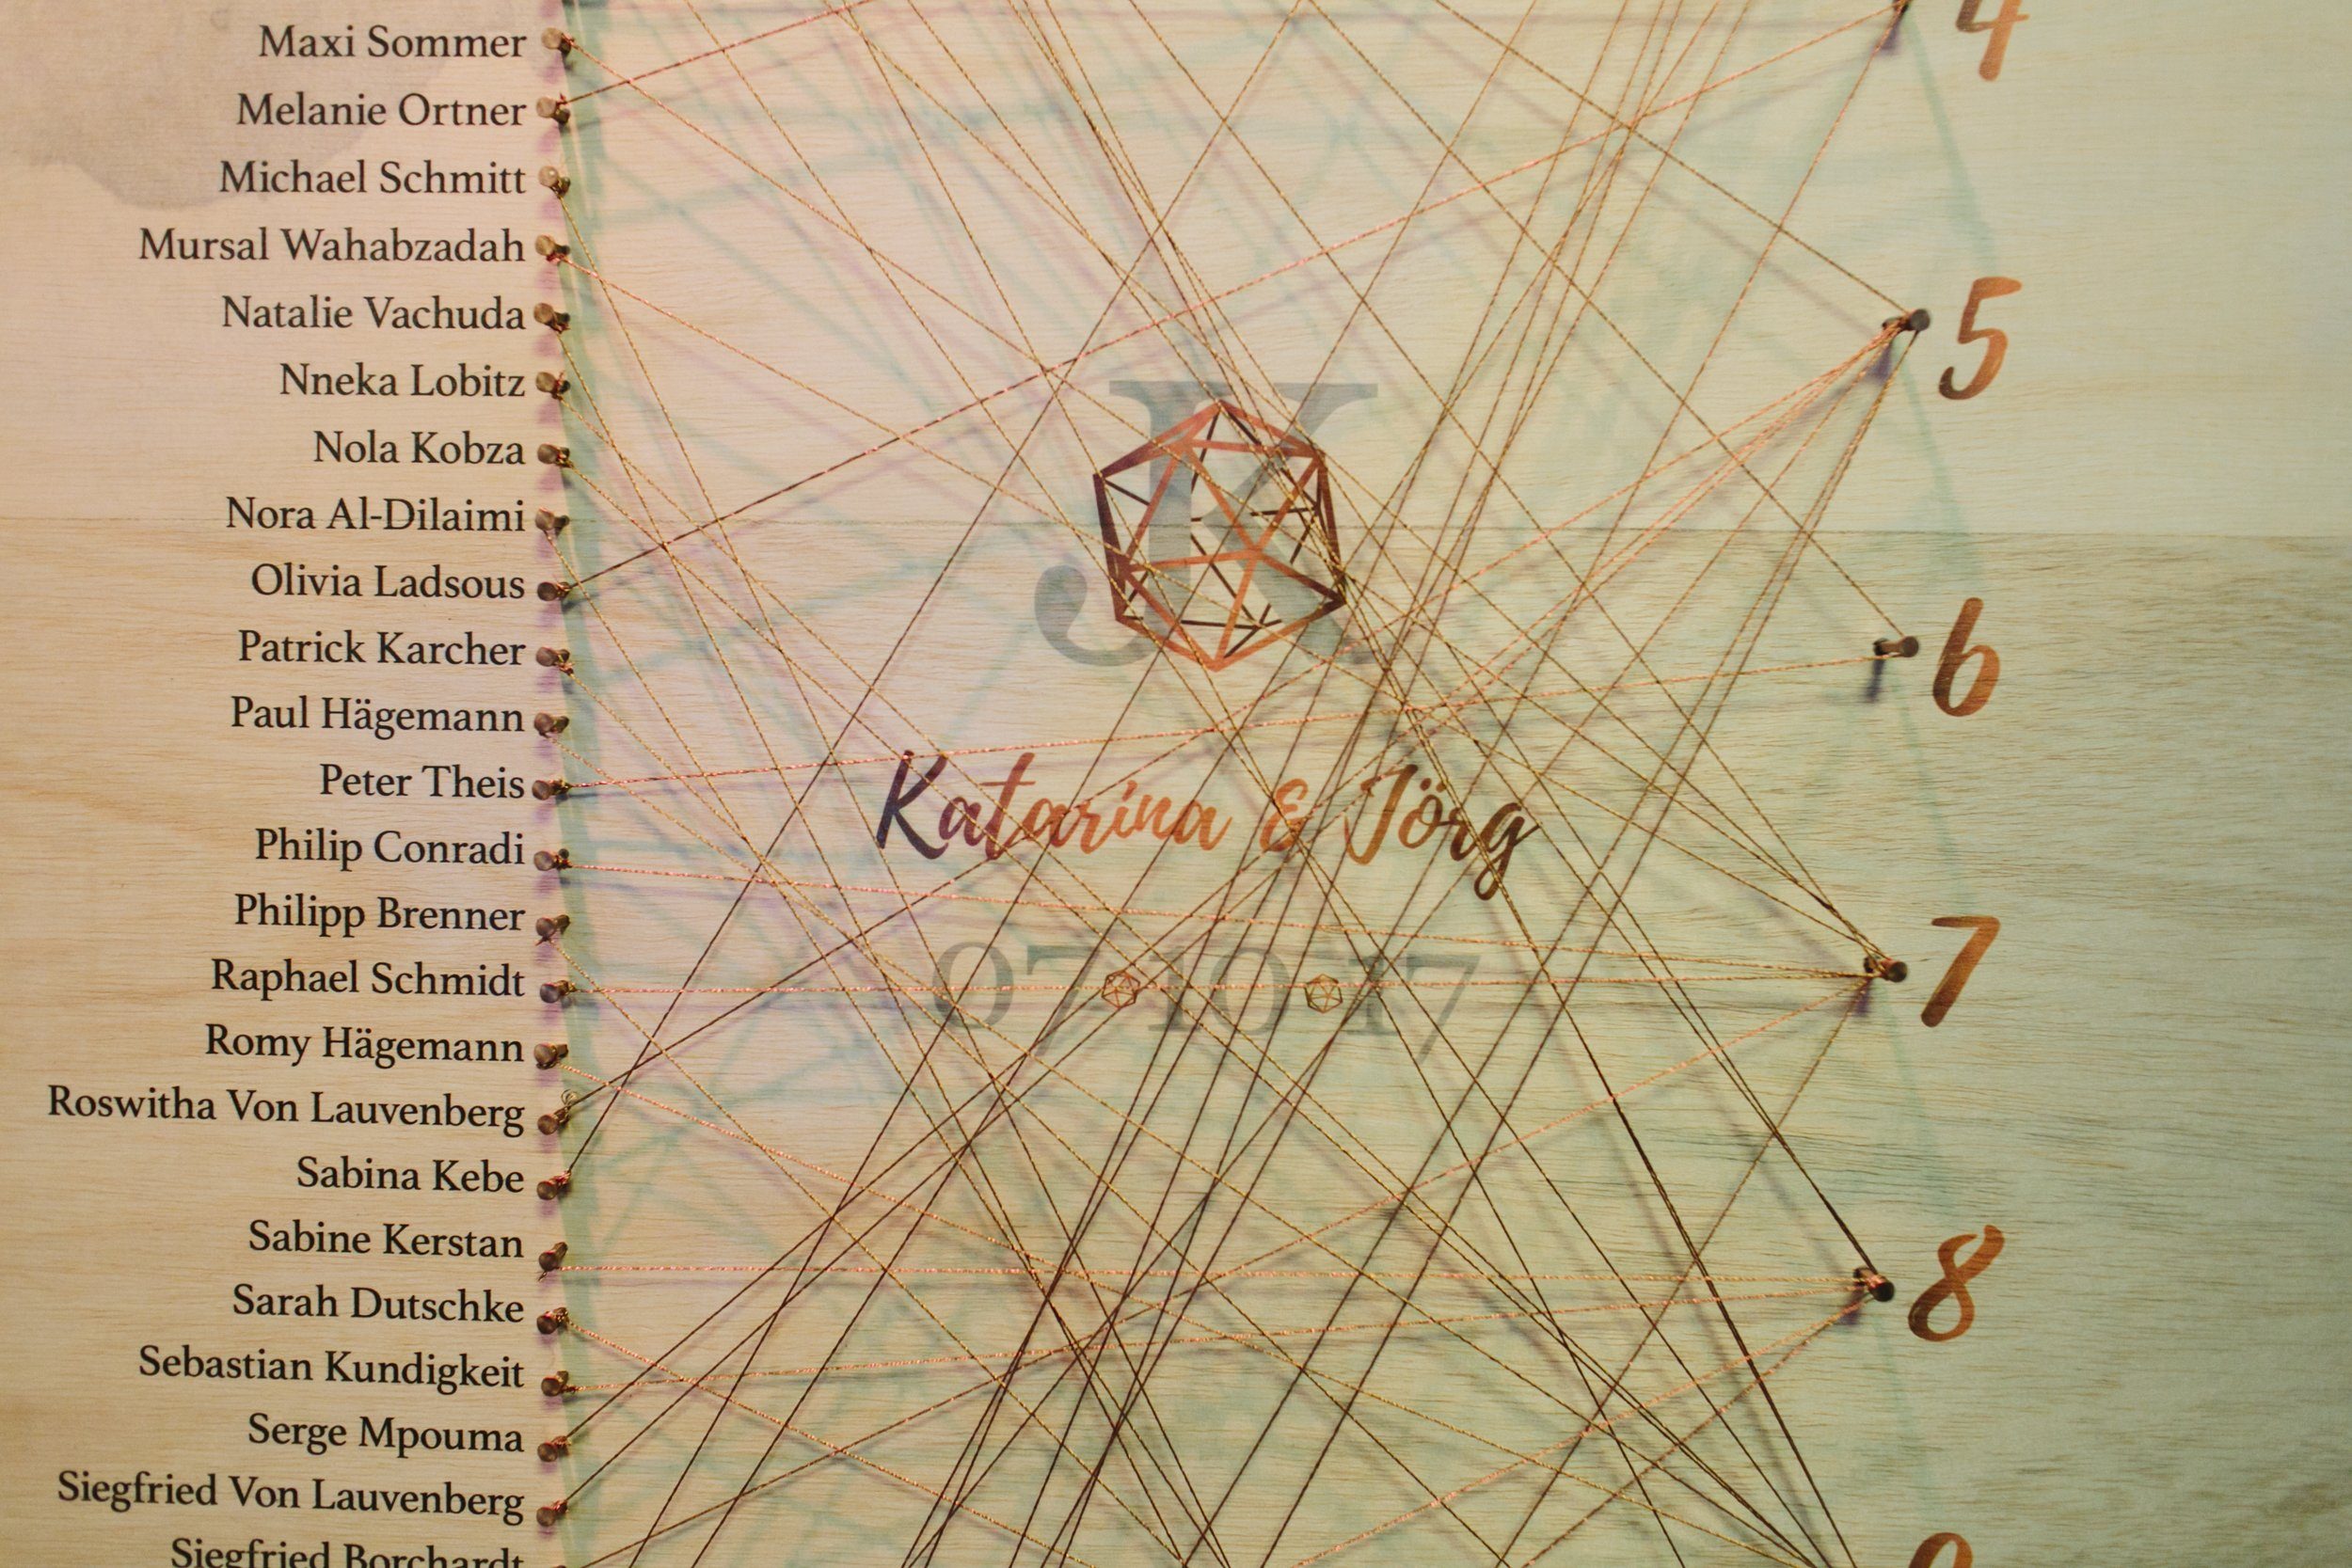 Maxi Sommer
Melanie Ortner
Michael Schmitt
Mursal Wahabzadah
Natalie Vachuda
Nneka Lobitz
Nola Kobza
Nora Al-Dilaimi
Olivia Ladsous
Patrick Karcher
Paul Hägemann
Peter Theis
Philip Conradi
Philipp Brenner
Raphael Schmidt
Romy Hägemann
Roswitha Von Lauvenberg
Sabina Kebe
Sabine Kerstan
Sarah Dutschke
Sebastian Kundigkeit
Serge Mpouma
Siegfried Von Lauvenberg
Siegfried Borchardt
JK
Katarina & Jörg
07 10 17
4
5
6
7
8
9